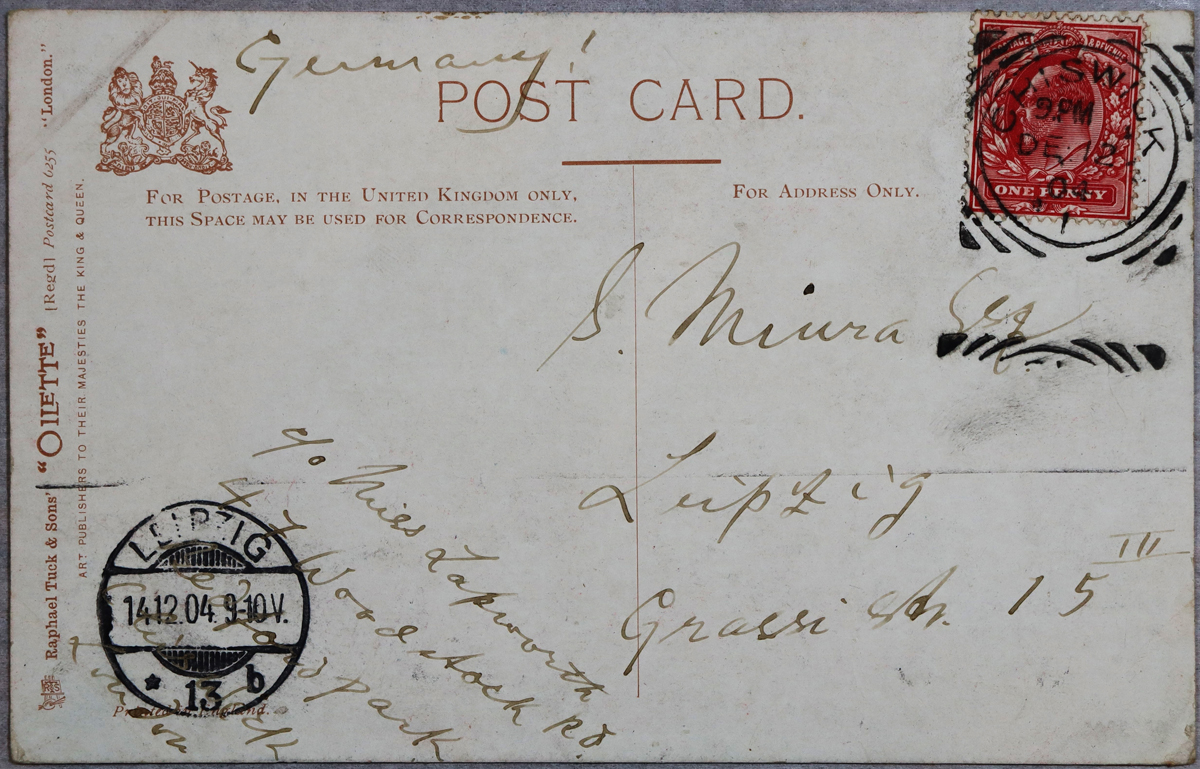 Germany!
POST CARD.
FOR POSTAGE, IN THE UNITED KINGDOM ONLY,
THIS SPACE MAY BE USED FOR CORRESPONDENCE.
FOR ADDRESS ONLY.
ONE PENNY
CHISWICK
9 PM
DE 12
04
1
S. Miura Esq
Leipzig
Grassi str. 15 III
c/o Miss Lapworth
47 Woodstock Rd
Bedford Park
Chiswick
London
LEIPZIG
14.12.04. 9-10V.
* 13 b
Printed in England.
Raphael Tuck & Sons' "OILETTE" [Regd] Postcard 6255 "London."
ART PUBLISHERS TO THEIR MAJESTIES THE KING & QUEEN.